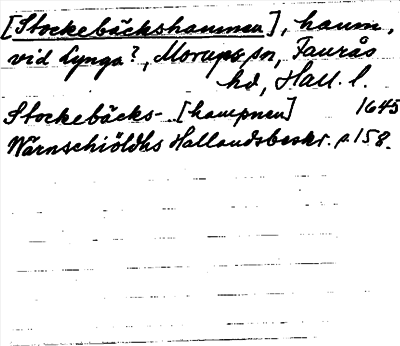 [Stockebäckshamnen], hamn,
vid Lynga?, Morups sn, Faurås
hd, Hall. l.
Stockebäcks- [hampnen] 1645
Wärnschiöldhs Hallandsbeskr. p. 158.